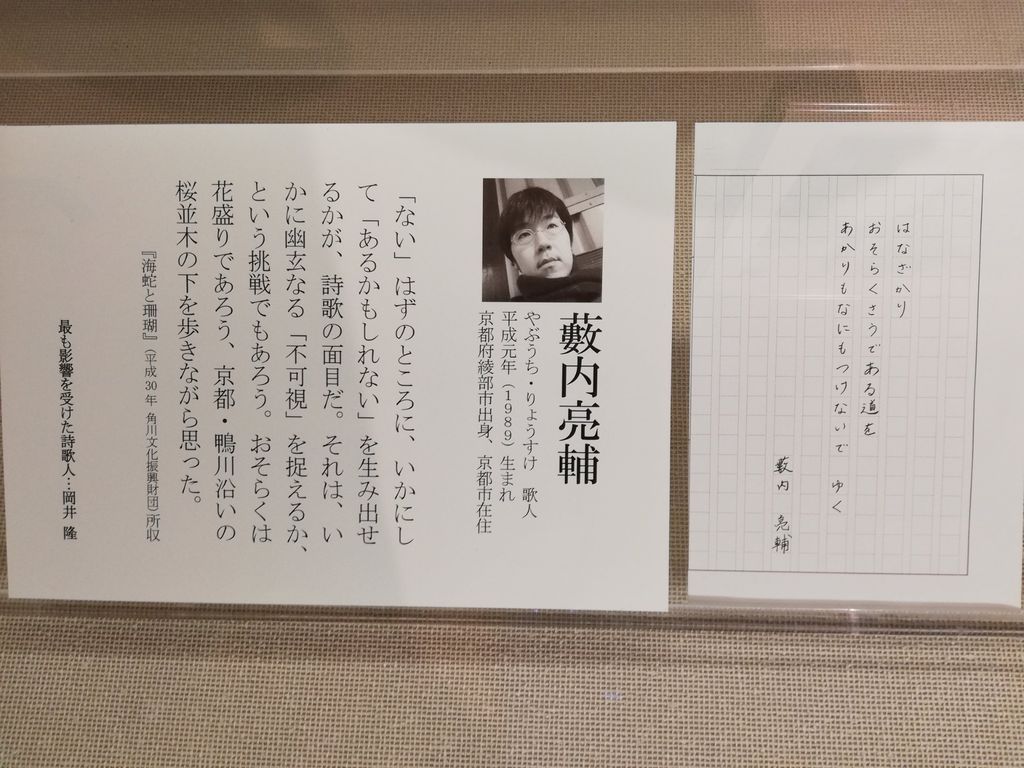 はなざかり
おそらくさうである道を
あかりもなにもつけないで ゆく
藪内 亮輔
藪内亮輔
やぶうち・りょうすけ 歌人
平成元年（1989）生まれ
京都府綾部市出身、京都市在住
「ない」はずのところに、いかにし
て「あるかもしれない」を生み出せ
るかが、詩歌の面目だ。それは、い
かに幽玄なる「不可視」を捉えるか、
という挑戦でもあろう。おそらくは
花盛りであろう、京都・鴨川沿いの
桜並木の下を歩きながら思った。
『海蛇と珊瑚』（平成30年 角川文化振興財団）所収
最も影響を受けた詩歌人…岡井 隆